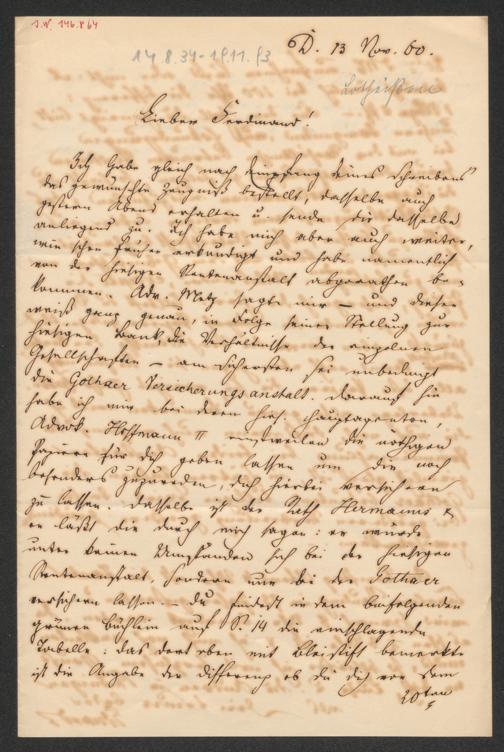 D. 13 Nov. 60.
Lieber Ferdinand!
Ich habe gleich nach Empfang deines Schreibens
das gewünschte Zeugniß bestellt, dasselbe auch
gestern Abend erhalten u. sende dir dasselbe
anliegend zu. Ich habe mich aber auch weiter,
wie schon früher erkundigt und habe namentlich
von der hiesigen Rentenanstalt abgerathen be-
kommen. Adv. Metz sagte mir — und dieser
weiß ganz genau, in Folge seiner Stellung zur
hiesigen Bank, die Verhältnisse der einzelnen
Gesellschaften — am sichersten sei unbedingt
die Gothaer Versicherungsanstalt. Darauf hin
habe ich mir bei deren hies. Hauptagenten,
Advok. Hoffmann II einstweilen die nöthigen
Papiere für dich geben lassen um dir noch
besonders zuzureden, dich hierbei versichern
zu lassen. Dasselbe ist der Rath Hermanns &
er läßt dir durch mich sagen: er würde
unter keinen Umständen sich bei der hiesigen
Rentenanstalt, sondern nur bei der Gothaer
versichern lassen. — Du findest in dem beifolgenden
grünen Büchlein auf S. 14 die einschlagende
Tabelle: das dort oben mit Bleistift bemerkte
ist die Angabe der Differenz ob du dich vor dem
20ten